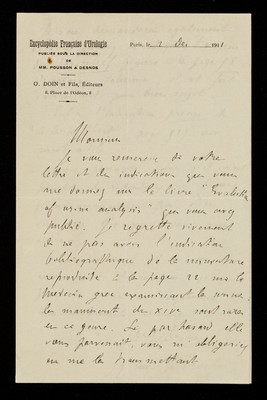 Encyclopédie Française d'Urologie
PUBLIÉE SOUS LA DIRECTION
DE
MM. POUSSON & DESNOS
O. DOIN et Fils, Éditeurs
8, Place de l'Odéon, 8
Paris, le 2 Dec 1911
Monsieur
Je vous remercie de votre
lettre et des indications que vous
me donnez sur le livre "Evolution
of urine analysis" que vous avez
publié. Je regrette vivement
de ne pas avoir l'indication
bibliographique de la miniature
reproduite à la page 22 
medecin grec examinant les urines
les manuscrits du XIVe sont rares
en ce genre. Si par hasard elle
vous parvenait, vous m'obligeriez
en me la transmettant